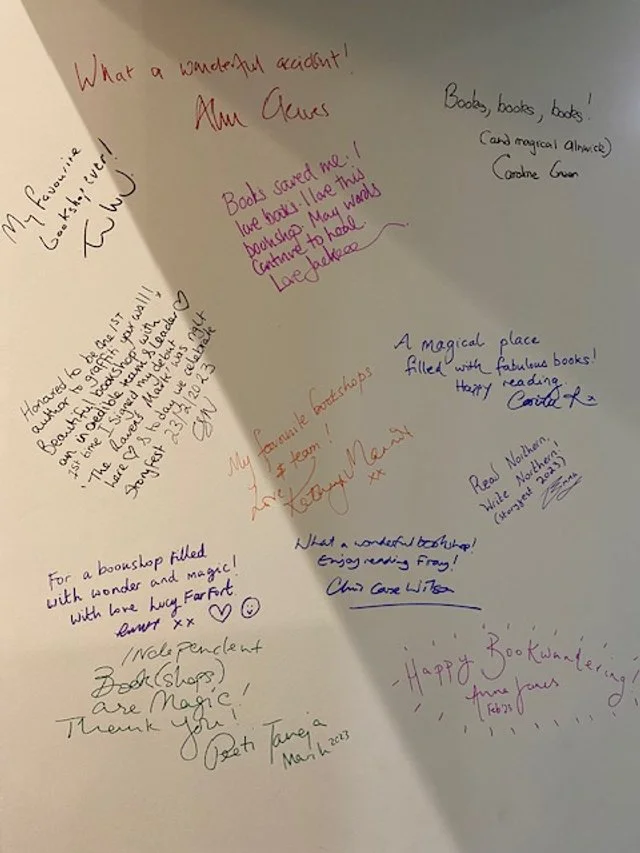 What a wonderful accident!
Books, books, books!
(and magical Alnwick)
Caroline
My favourite
bookshop ever!
Books saved me. I
love books. I love this
bookshop. May words
continue to heal.
Love
Honoured to be the 1st
author to graffiti your wall!
Beautiful bookshop with
an incredible team & leader
1st time I signed my debut
'The Raven's Mark' was right
here ♡ & today we celebrate
Storyfest 23/2/2023
A magical place
filled with fabulous books!
Happy reading.
My favourite bookshops
& team!
Love
xx
Read Northern,
Write Northern!
(Storyfest 2023)
Emma
What a wonderful bookshop!
Enjoy reading
For a bookshop filled
with wonder and magic!
With love Lucy Farfort
xx ♡ ☺
Independent
Book(shops)
are Magic!
Thank you!
Preti Taneja
March 2023
Happy Bookwandering!
Anna James
Feb 23